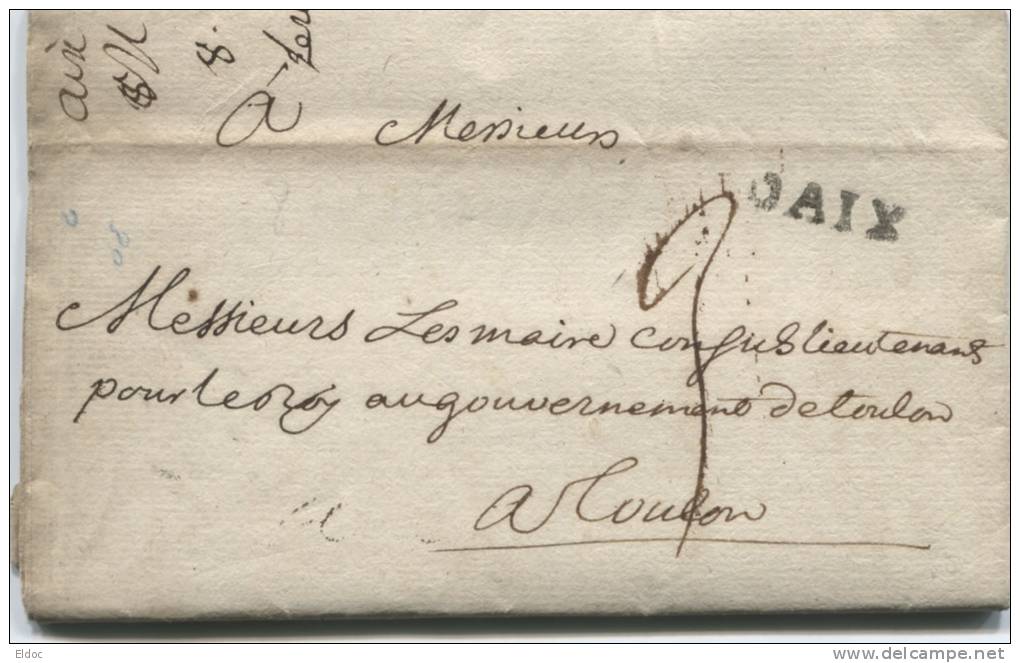 A Messieurs
DAIX
Messieurs Les maire Consuls lieutenant
pour le Roy au gouvernement de toulon
a Toulon
Eldoc
delcampe.net